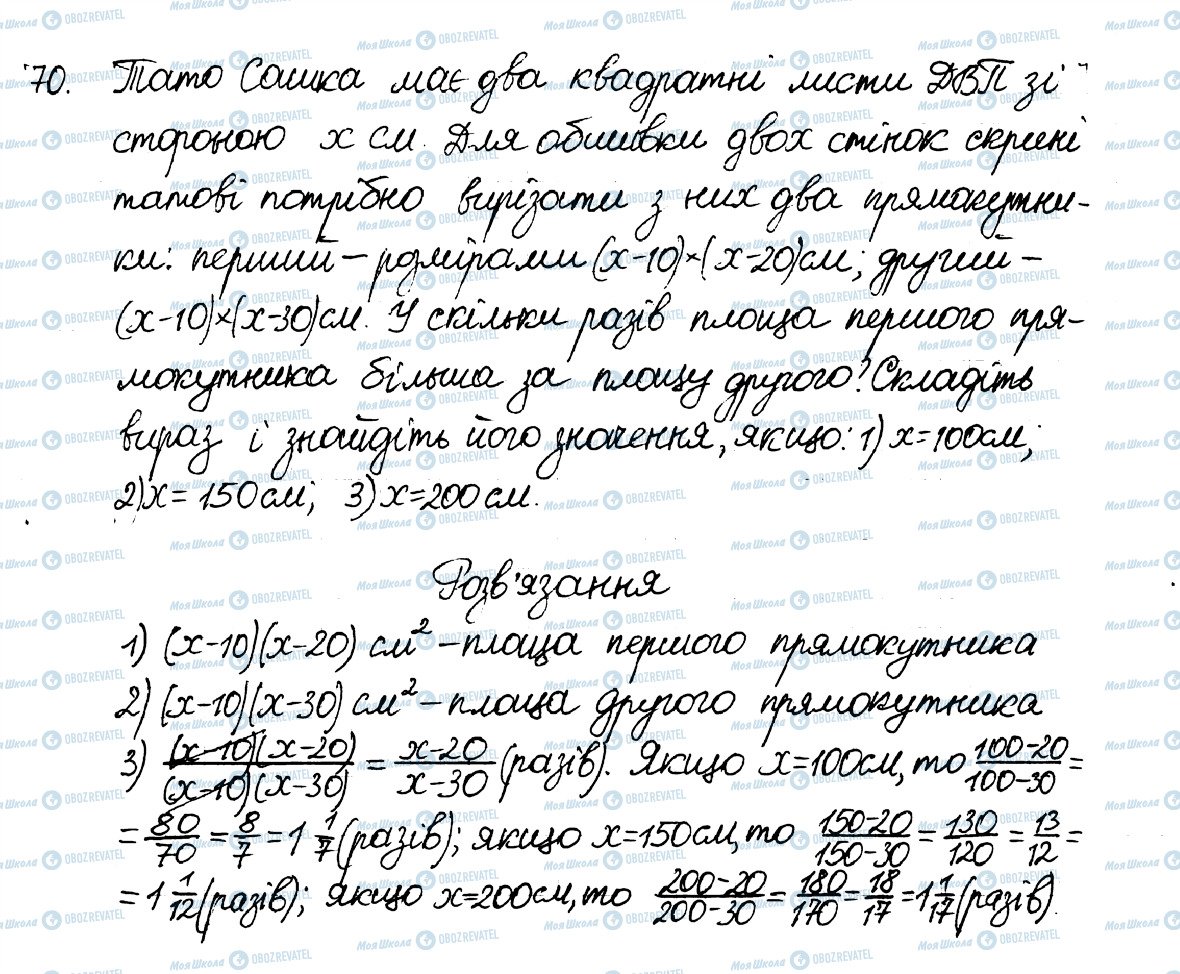 70. Тато Сашка має два квадратні листи ДВП зі
стороною x см. Для обшивки двох стінок скрині
татові потрібно вирізати з них два прямокутни-
ки: перший – розмірами (x-10)×(x-20)см; другий –
(x-10)×(x-30)см. У скільки разів площа першого пря-
мокутника більша за площу другого? Складіть
вираз і знайдіть його значення, якщо: 1) x=100см;
2) x=150см; 3) x=200см.
Розв'язання
1) (x-10)(x-20) см² – площа першого прямокутника
2) (x-10)(x-30) см² – площа другого прямокутника
3) (x-10)(x-20)/(x-10)(x-30) = x-20/x-30 (разів). Якщо x=100см, то 100-20/100-30 =
= 80/70 = 8/7 = 1 1/7 (разів); якщо x=150см, то 150-20/150-30 = 130/120 = 13/12 =
= 1 1/12 (разів); якщо x=200см, то 200-20/200-30 = 180/170 = 18/17 = 1 1/17 (разів).
Моя Школа OBOZREVATEL